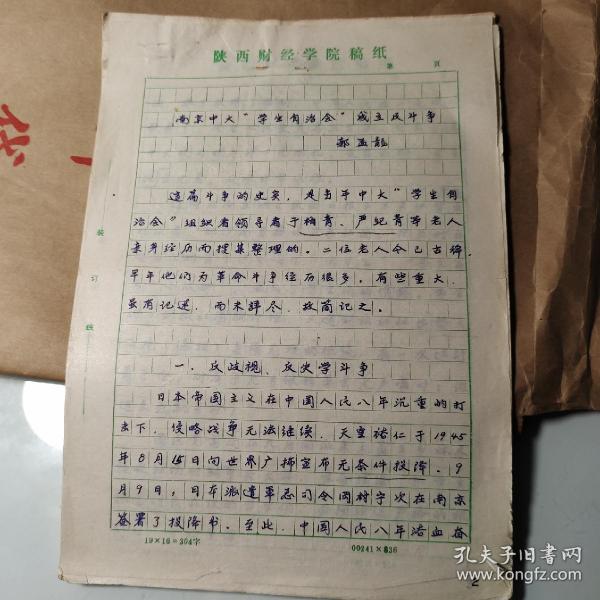 陕西财经学院稿纸
第 页
南京中大“学生自治会”成立及斗争
郭孟龍
这篇斗争的史实，是当年中大“学生自
治会”组织者领导者于梅青、严纪青等老人
亲身经历而搜集整理的。二位老人今已古稀
早年他们为革命斗争经历很多，有些重大，
虽有记述，而未辞尽，故简记之。
一、反歧视、反火学斗争
日本帝国主义在中国人民八年沉重的打
击下，侵略战争无法继续，天皇裕仁于1945
年8月15日向世界广播宣布无条件投降。9
月9日，日本派遣军总司令冈村宁次在南京
签署了投降书。至此，中国人民八年浴血奋
装
订
线
19×16=304字
00241×836
2
孔夫子旧书网
www.kongfz.com